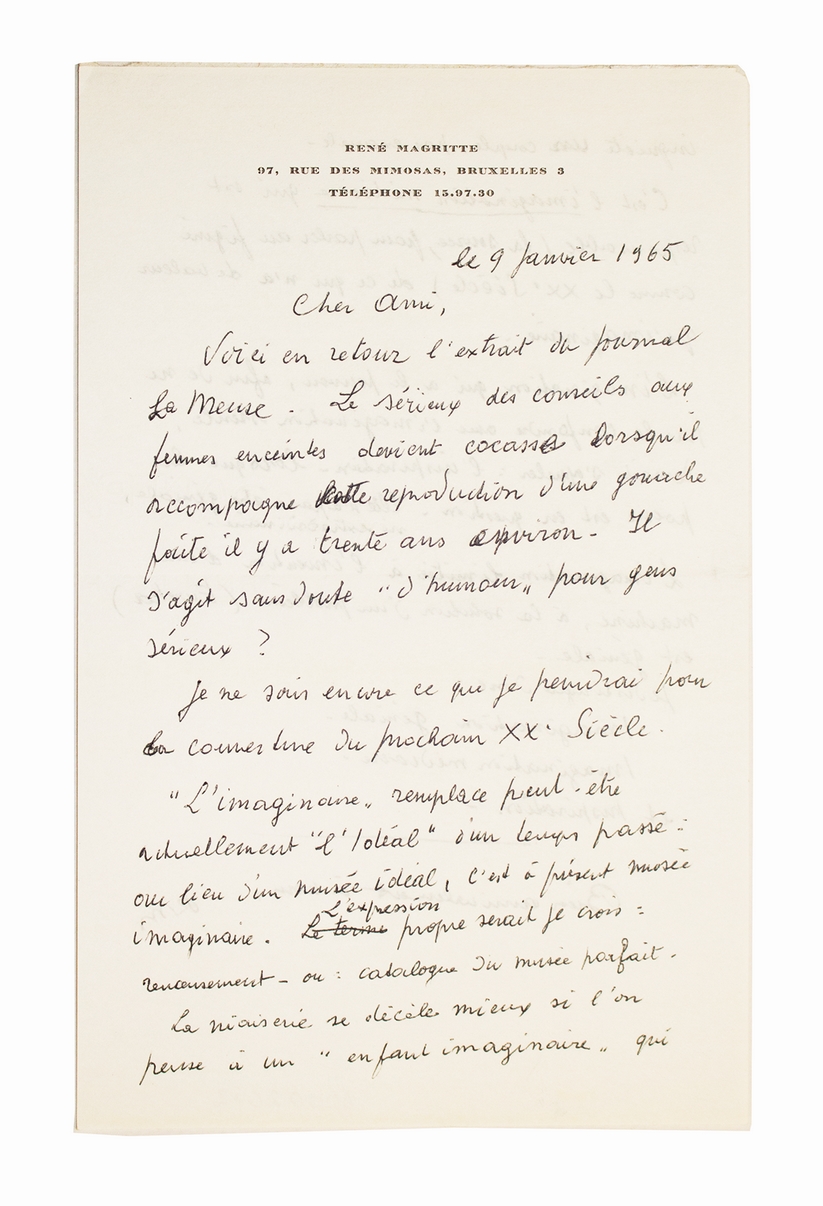 RENÉ MAGRITTE
97, RUE DES MIMOSAS, BRUXELLES 3
TÉLÉPHONE 15.97.30
le 9 Janvier 1965
Cher Ami,
Voici en retour l'extrait du journal
La Meuse. Le sérieux des conseils aux
femmes enceintes devient cocasse lorsqu'il
accompagne cette reproduction d'une gouache
faite il y a trente ans environ. Il
s'agit sans doute "d'humour" pour gens
sérieux ?
Je ne sais encore ce que je peindrai pour
la couverture du prochain XXe Siècle.
"L'imaginaire" remplace peut-être
actuellement "l'Idéal" d'un temps passé :
au lieu d'un musée idéal, c'est à présent musée
L'expression
imaginaire. Le terme propre serait je crois :
recensement - ou : catalogue du musée parfait.
La niaiserie se décèle mieux si l'on
pense à un "enfant imaginaire" qui